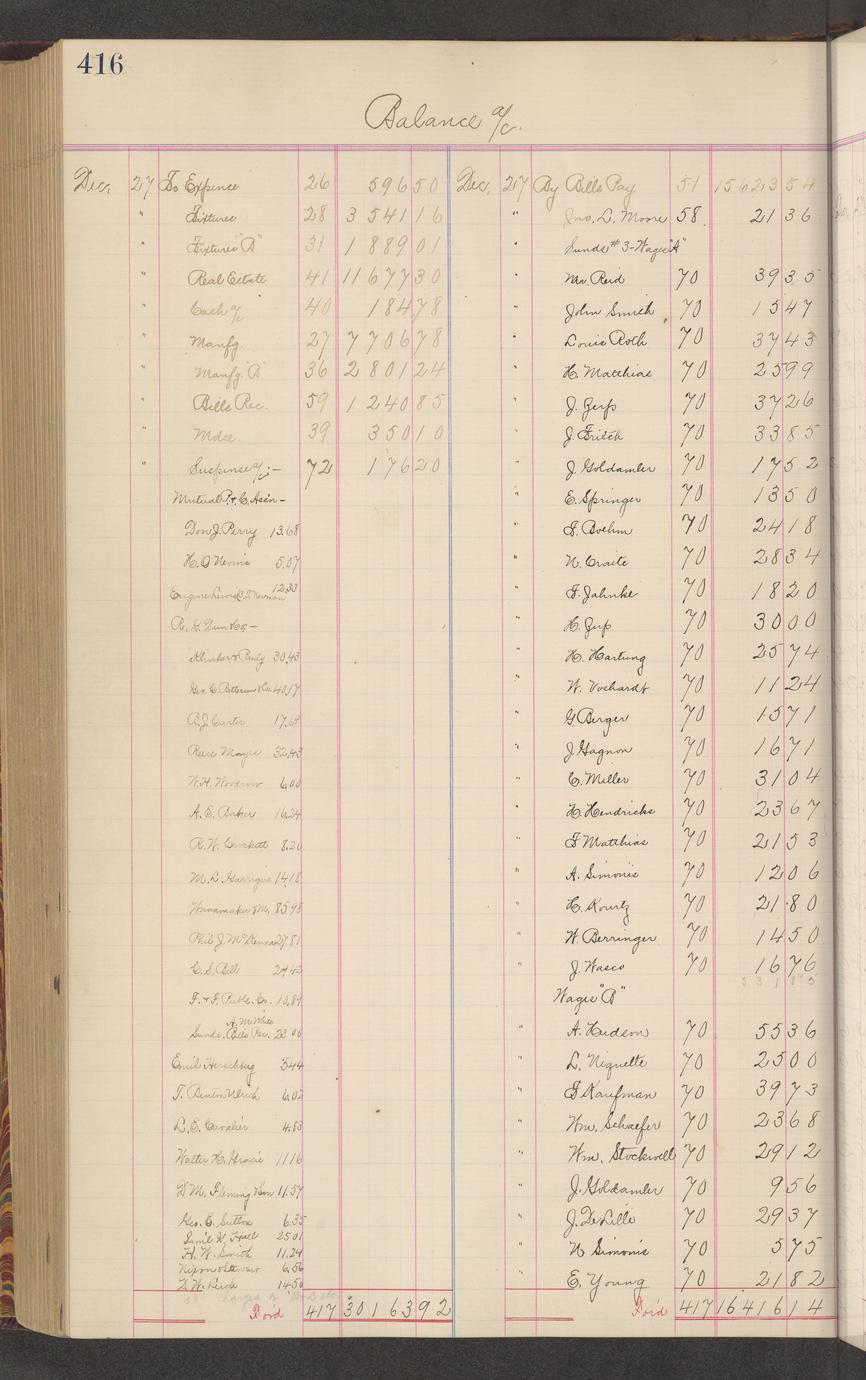 416
Balance a/c.
Dec. 27 To Expense 26 596 50
" Fixtures 28 3 541 16
" Fixtures "B" 31 1 889 01
" Real Estate 41 11 677 30
" Cash a/c 40 184 78
" Manfg. 27 7 706 78
" Manfg. "B" 36 2 801 24
" Bills Rec. 59 1 240 85
" Mdse. 39 350 10
" Suspense a/c:— 72 176 20
Mutual P. & C. Ass'n—
Don J. Perry 13.68
H. O. Nevins 5.07
Eugene Lewis 12.33
R. G. Dun & Co.—
30.43
Geo. C. & Co. 40.17
R. J. Carter 17.69
Bell Mayes 32.43
W. H. Woodrow 6.00
A. E. Baker 16.24
R. W. Crockett 8.20
M. L. 14.18
Wanamaker & M. 85.98
Phil J. McKenna 27.81
C. S. Bell 29.42
F. & F. Publ. Co. 10.89
A. M. White
Sunds. Bills Rec. 23 00
Emil Herschberg 5.44
T. Benton Ulrich 6.02
L. E. Cavalier 4.53
Walter H. Gracie 11.16
D. M. Fleming & Son 11.57
Geo. E. Sutton 6.35
Saml K. 25.01
H. W. Smith 11.24
Nixon & Stewart 6.56
D. W. 14.50
Ford 417 30 163 92
Dec. 27 By Bills Pay 51 15 623 54
" Jno. L. Moore 58 21 36
" Sunds #3-Wages "A"
" Wm. Reid 70 39 35
" John Smith 70 15 47
" Louis Roth 70 37 43
" H. Matthias 70 25 99
" J. Gerfs 70 37 26
" J. Fritch 70 33 85
" J. Goldamler 70 17 52
" E. Springer 70 13 50
" F. Boehm 70 24 18
" N. Craite 70 28 34
" F. Jahnke 70 18 20
" H. 70 30 00
" H. Hartung 70 25 74
" W. Voshardt 70 11 24
" G. Berger 70 15 71
" J. Gagnon 70 16 71
" C. Miller 70 31 04
" H. Hendricks 70 23 67
" F. Matthias 70 21 53
" A. Simonis 70 12 06
" H. Kourtz 70 21 80
" W. Berringer 70 14 50
" J. Wasco 70 16 76
Wages "B"
" A. Hudson 70 55 36
" L. Niquette 70 25 00
" F. Kaufman 70 39 73
" Wm. Schaefer 70 23 68
" Wm. Stockwell 70 29 12
" J. Goldamler 70 9 56
" J. DeLille 70 29 37
" N. Simonis 70 5 75
" E. Young 70 21 82
Ford 417 16 416 14